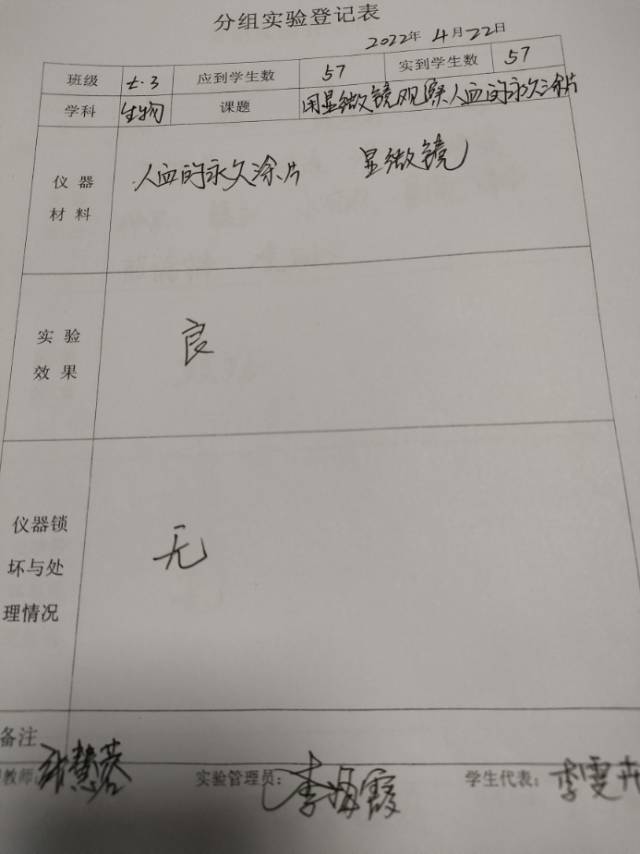 分组实验登记表
2022年 4月22日
班级 七.3 应到学生数 57 实到学生数 57
学科 生物 课题 用显微镜观察人血的永久涂片
仪器
材料
人血的永久涂片 显微镜
实验
效果
良
仪器锁
坏与处
理情况
无
备注
教师: 张慧蓉 实验管理员: 李海霞 学生代表: 李雯卉